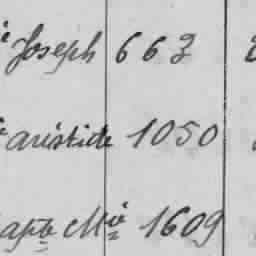 Joseph 663
aristide 1050
apte Mie 1609